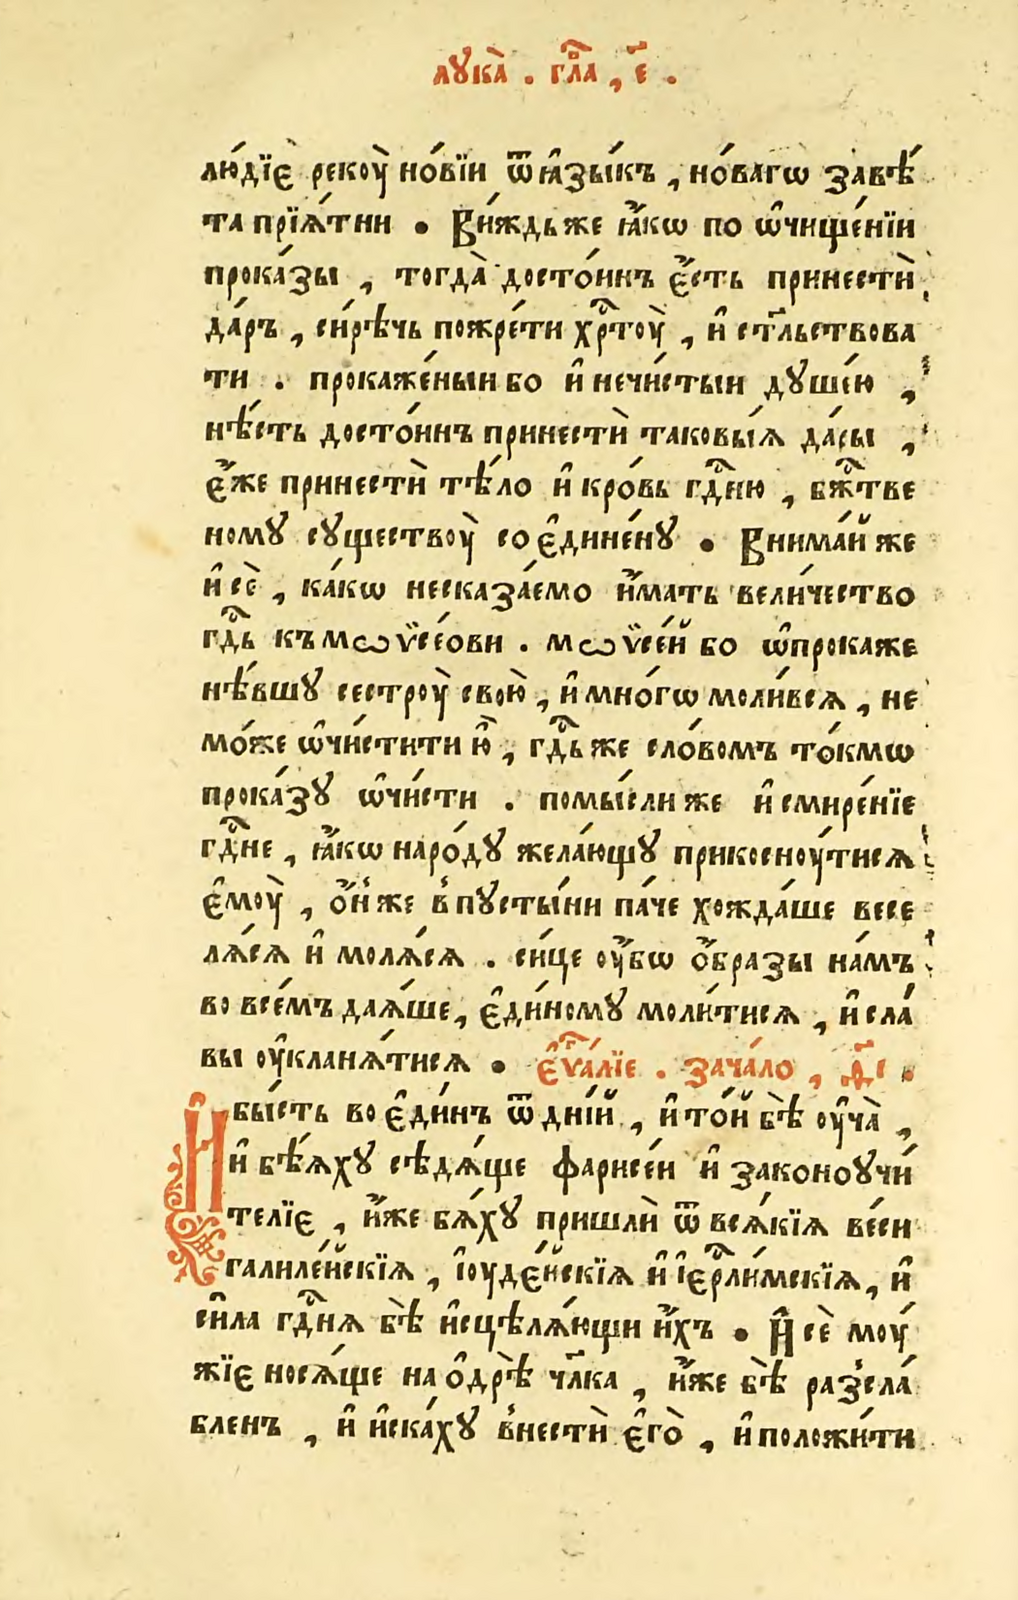 лꙋка̀ . гл҃а , є҃ .
лю́дїє рекоу̀ но́вїи ѿ ꙗ҆зы́къ , но́вагѡ завѣ́
та прїѧ́тни . Ви́ждь же ꙗ҆́кѡ по ѡ҆чище́нїи
прока́зы , тогда̀ досто́инъ є҆́сть принестѝ
да́ръ , си́рѣчь пожре́ти хрⷭ҇тоу̀ , и҆ ст҃льствова
ти . прокаже́ныи бо и҆ нечи́стыи дꙋше́ю ,
нѣ́сть досто́инъ принестѝ таковы́ѧ да́ры ,
є҆́же принестѝ тѣ́ло и҆ кро́вь гдⷭ҇ню , бжⷭ҇тве
номꙋ сꙋществоу̀ соє҆дине́нꙋ . Внима́й же
и҆ сѐ , ка́кѡ несказа́емо и҆́мать вели́чество
гдⷭ҇ь къ мѡѷсе́ови . мѡѷсе́й бо ѡ҆прокаже
нѣ́вшꙋ сестроу̀ свою̀ , и҆ мно́гѡ моли́всѧ , не
мо́же ѡ҆чи́стити ю҆̀ , гдⷭ҇ь же сло́вомъ то́кмѡ
прока́зꙋ ѡ҆чи́сти . помы́сли же и҆ смире́нїе
гдⷭ҇не , ꙗ҆́кѡ наро́дꙋ жела́ющꙋ прикосноу́тисѧ
є҆моу̀ , ѻ҆́н же в пꙋсты́ни па́че хожда́ше весе
лѧ́сѧ и҆ молѧ́сѧ . си́це оу҆́бѡ ѻ҆́бразы на́мъ
во все́мъ даѧ́ше , є҆ди́номꙋ моли́тисѧ , и҆ сла́
вы оу҆кланѧ́тисѧ . є҆ѵⷢ҇а́лїе . зача́ло , д҃і .
И҆ бы́сть во є҆ди́нъ ѿ дні́й , и҆ то́й бѣ̀ оу҆ча̀ ,
и҆ бѣ́ѧхꙋ сѣдѧ́ще фарисе́и и҆ законоꙋчи́
телїє , и҆́же бѧ́хꙋ пришлѝ ѿ всѧ́кїѧ ве́си
галиле́йскїѧ , і҆оуде́йскїѧ и҆ і҆ерⷭ҇ли́мскїѧ , и҆
си́ла гдⷭ҇нѧ бѣ̀ и҆сцѣлѧ́ющи и҆́хъ . И҆ сѐ моу́
жїє носѧ́ще на ѻ҆дрѣ̀ чл҃ка , и҆́же бѣ̀ разсла́
бленъ , и҆ и҆ска́хꙋ внестѝ є҆го̀ , и҆ положи́ти